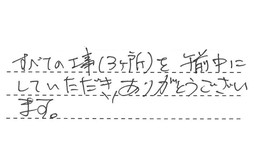 すべての工事(3ヶ所)を午前中に
していただき、ありがとうござい
ます。